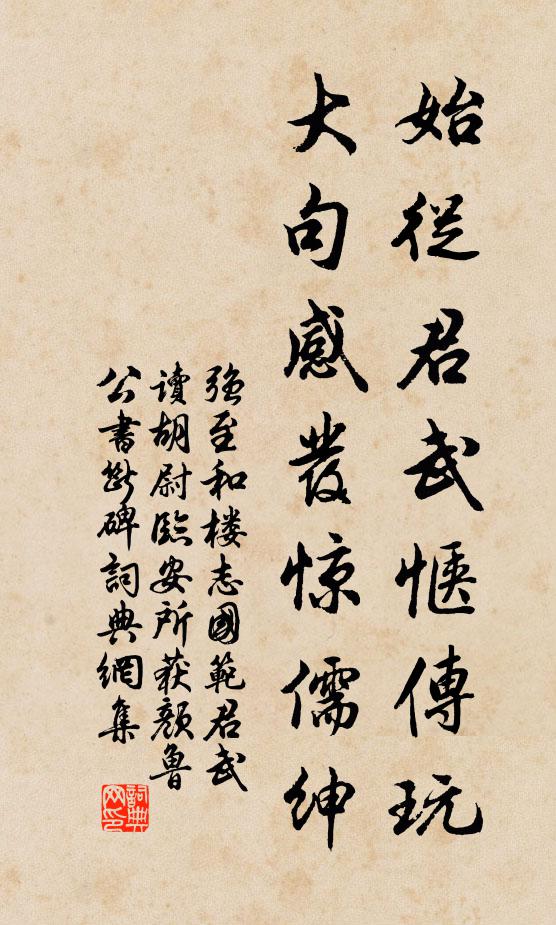 始從君武愜傳玩
大句感發惊儒紳
强至和楼志國範君武
讀胡尉臨安所获顏魯
公書断碑詞典網集
詞典网印